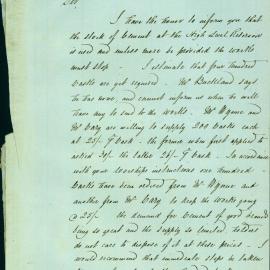 Sir,
I have the honor to inform you that
the stock of Cement at the High Level Reservoir
is used and unless more is provided the works
must stop - I estimate that four hundred
casks are yet required. Mr Buckland says
he has none, and cannot inform us when he will
have any to send to the works. Mr Wynne and
Mr Cary are willing to supply 200 casks each
at 25/- p cask - the former when first applied to
asked 30/- the latter 28/- p cask. In accordance
with your worships instructions one hundred
casks have been ordered from Mr Wynne and
another from Mr Cary to keep the works going
@ 25/- the demand for Cement of good
being so great and the supply so limited,
do not care to dispose of it at these prices - I
would recommend that immediate steps be taken